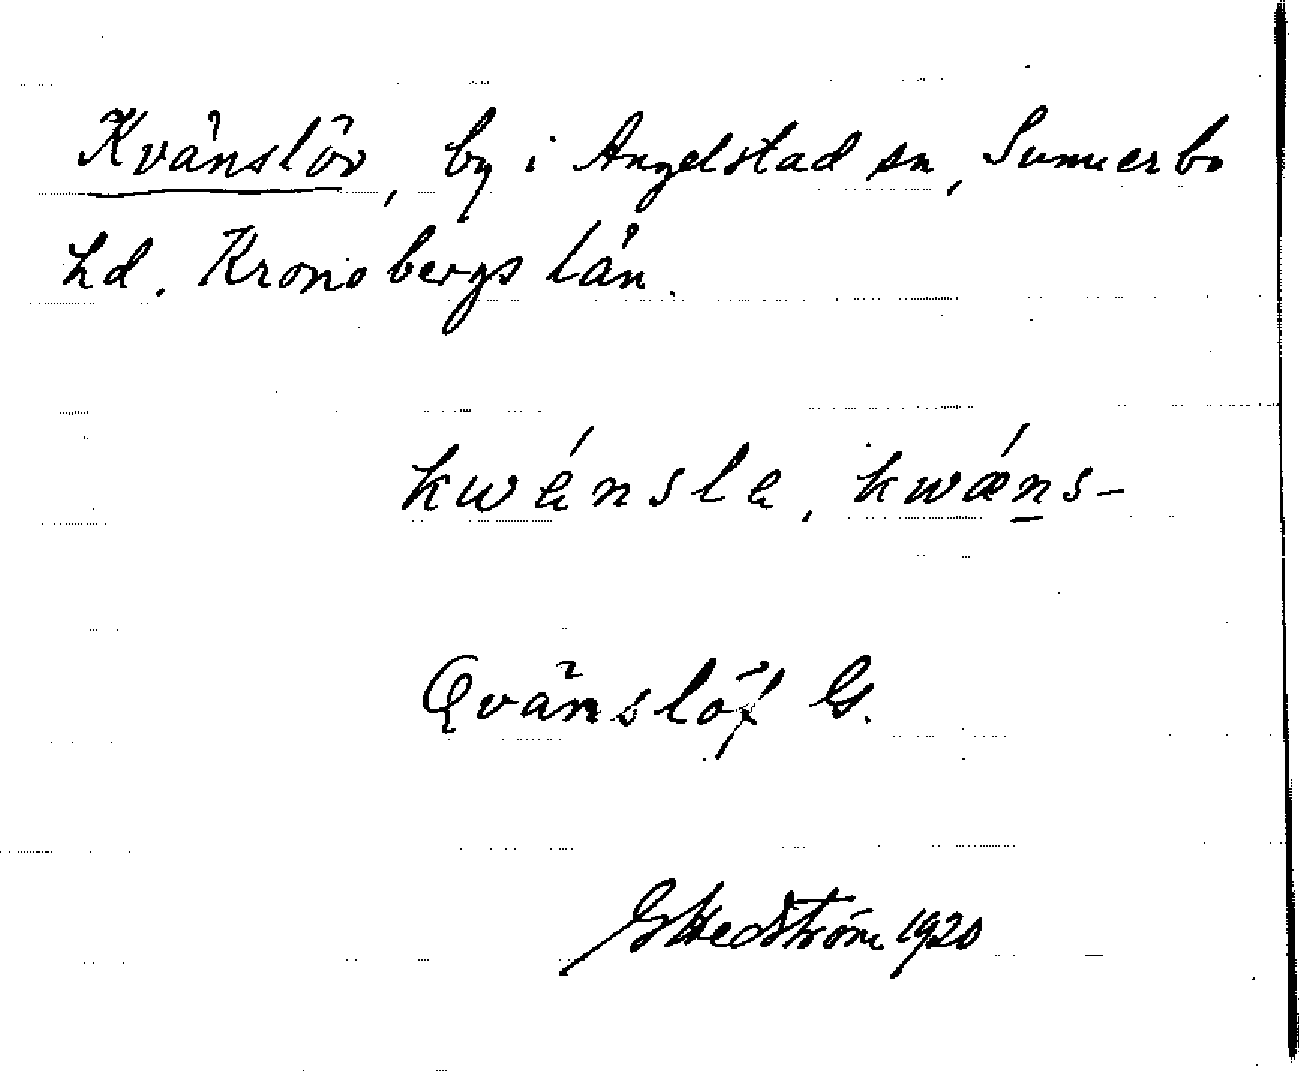 Kvänslöv, by i Angelstad sn, Sunnerbo
hd. Kronobergs län.
kwánsla, kwǽns-
Qvänslöf G.
G Hedström 1920